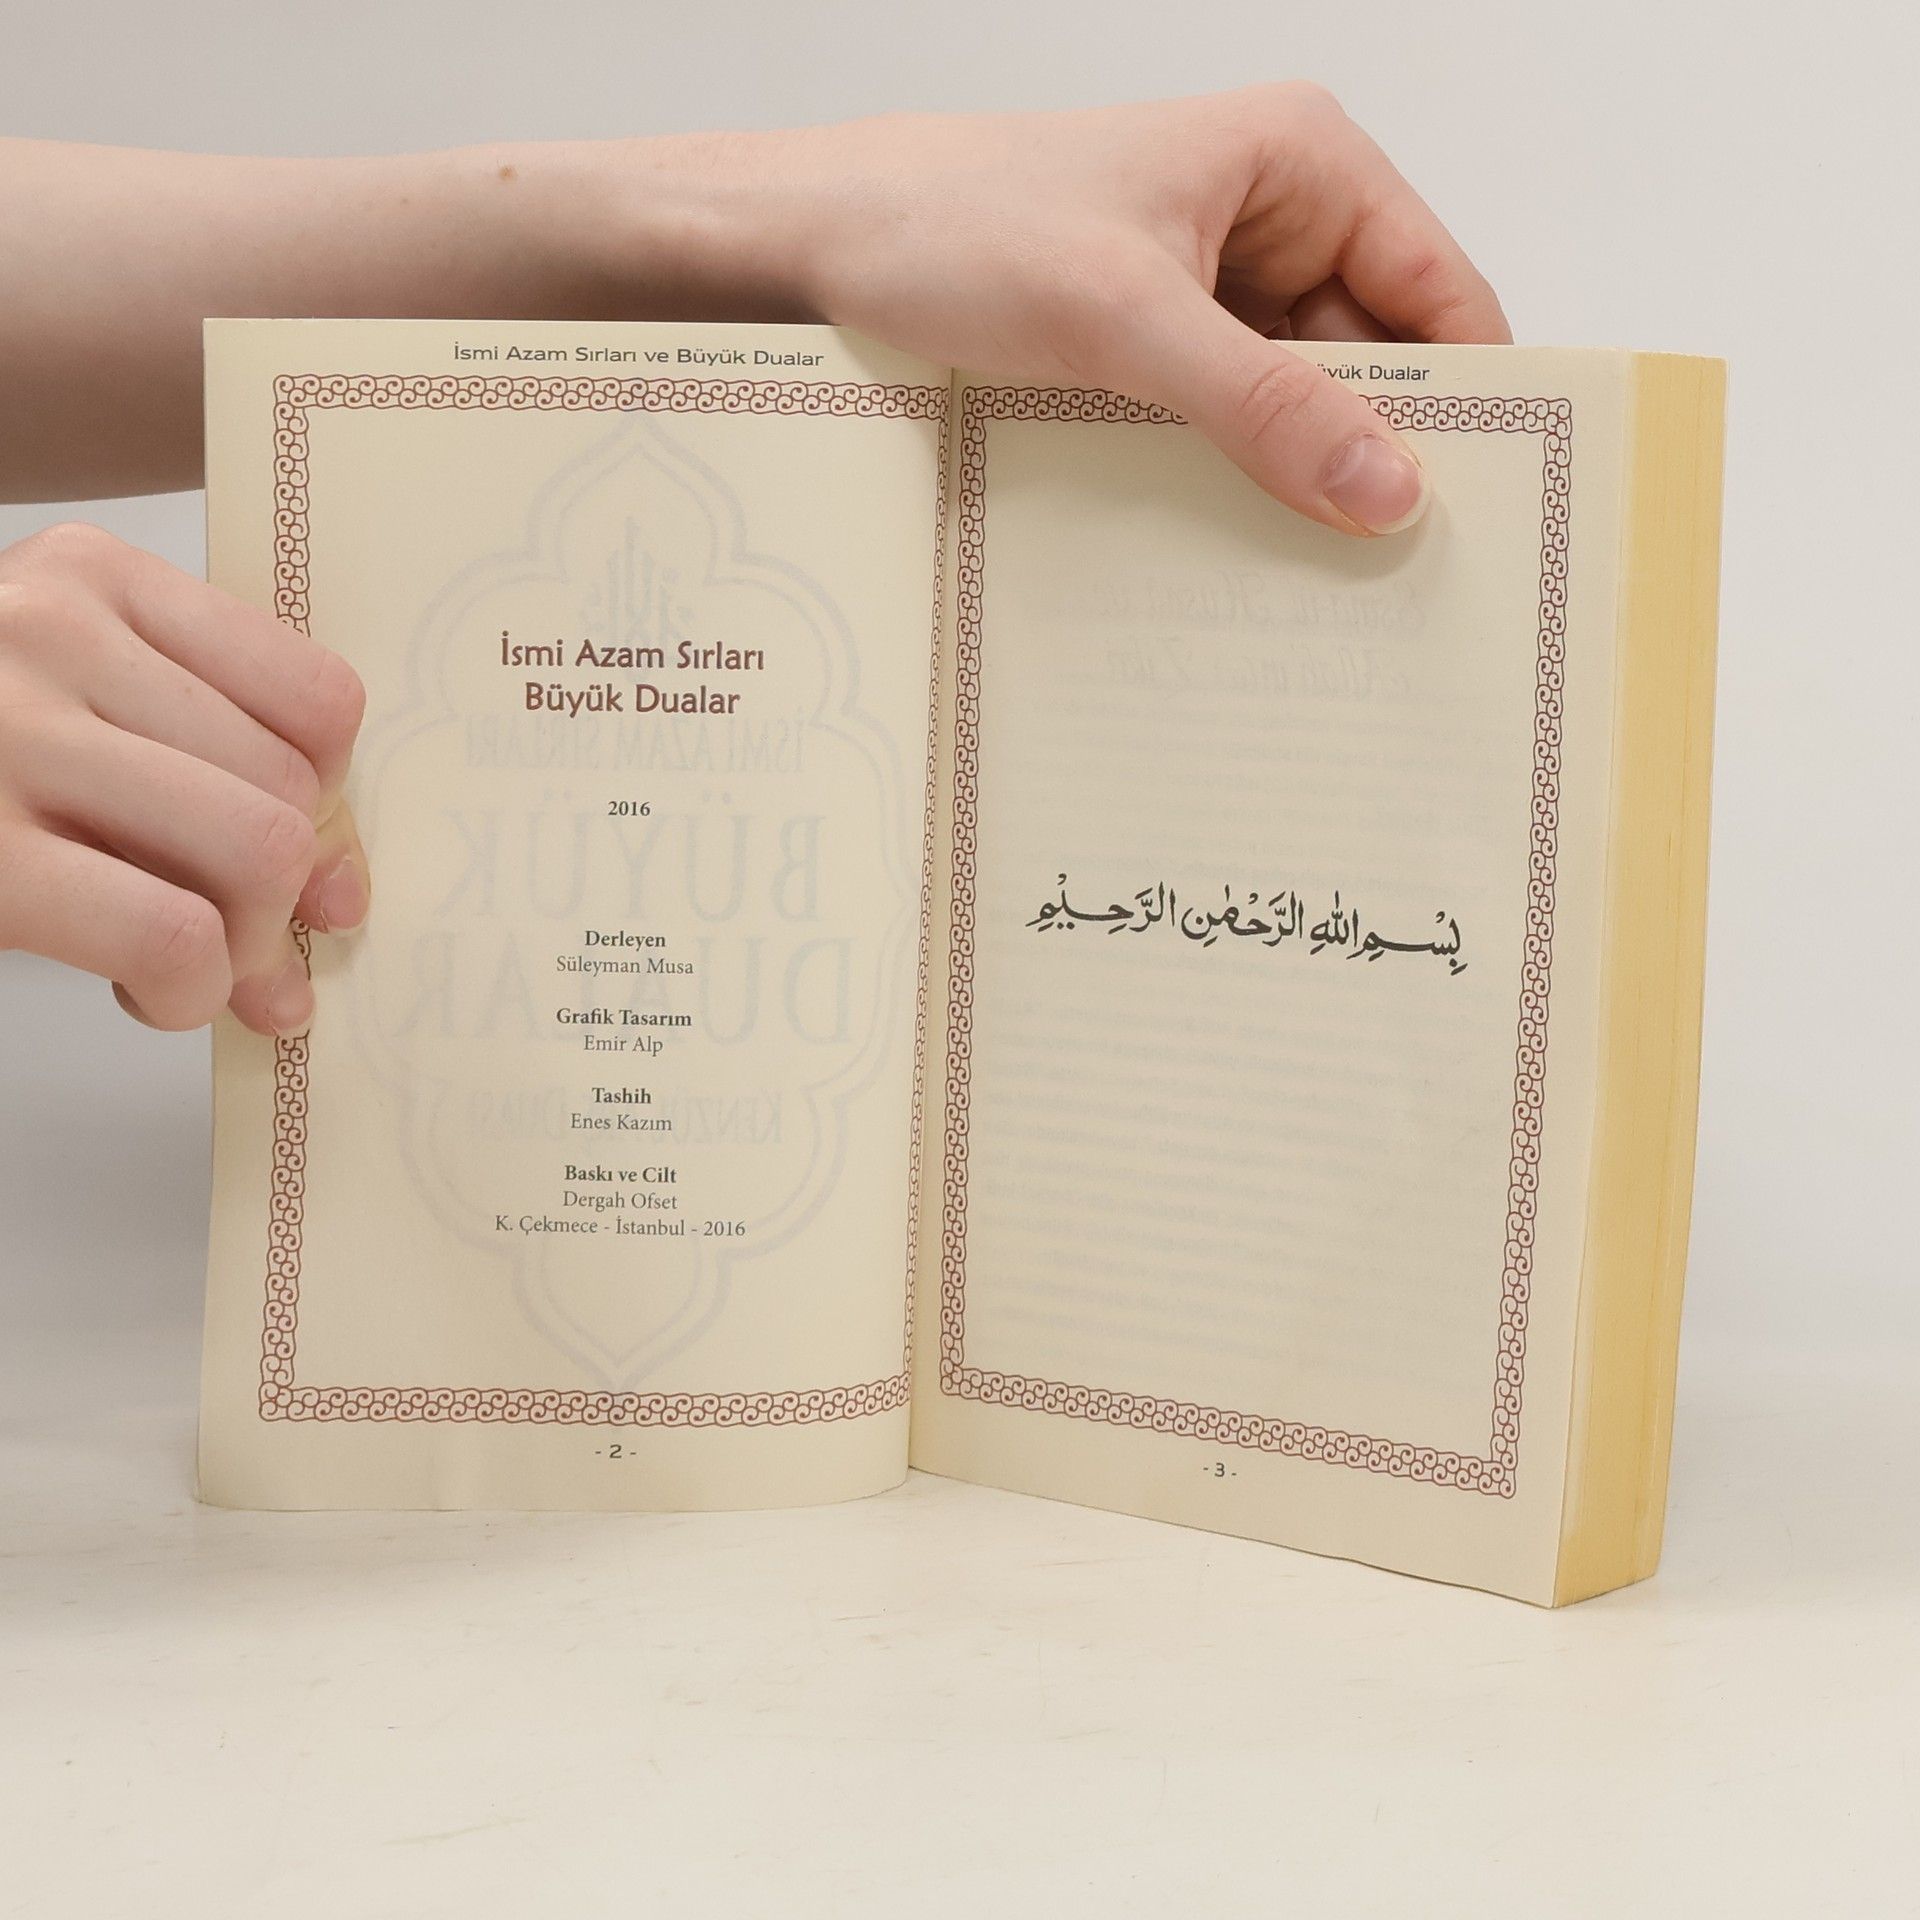 İsmi Azam Sırları ve Büyük Dualar
İsmi Azam Sırları
Büyük Dualar
2016
Derleyen
Süleyman Musa
Grafik Tasarım
Emir Alp
Tashih
Enes Kazım
Baskı ve Cilt
Dergah Ofset
K. Çekmece - İstanbul - 2016
- 2 -
Dualar
بِسْمِ اللهِ الرَّحْمٰنِ الرَّحِيْمِ
- 3 -